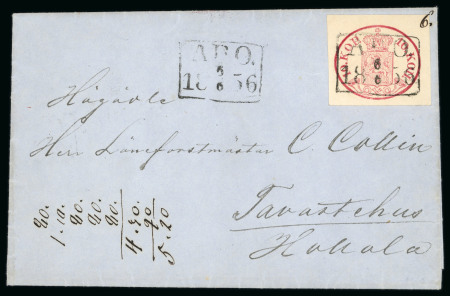 6.
ABO.
6
6
1856
10 KOП. 10 KOП.
ABO.
6
6
1856
Högädle
Herr Läneforstmästar C. Collin
Tavastehus
Hollola
20.
1.10.
20.
20.
20.
4.30
90
5.20